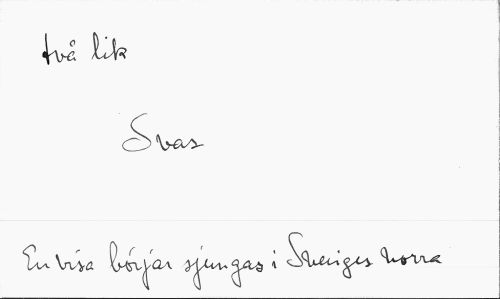 två lik
Svas
En visa börjar sjungas i Sveriges norra